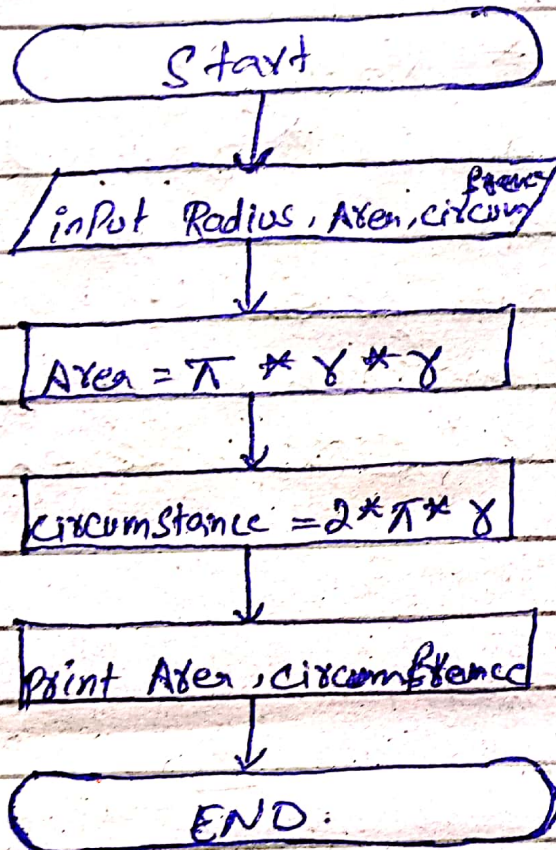 Start
input Radius, Area, circumfrence
Area = π * r * r
circumstance = 2*π* r
print Area, circumfrence
END.